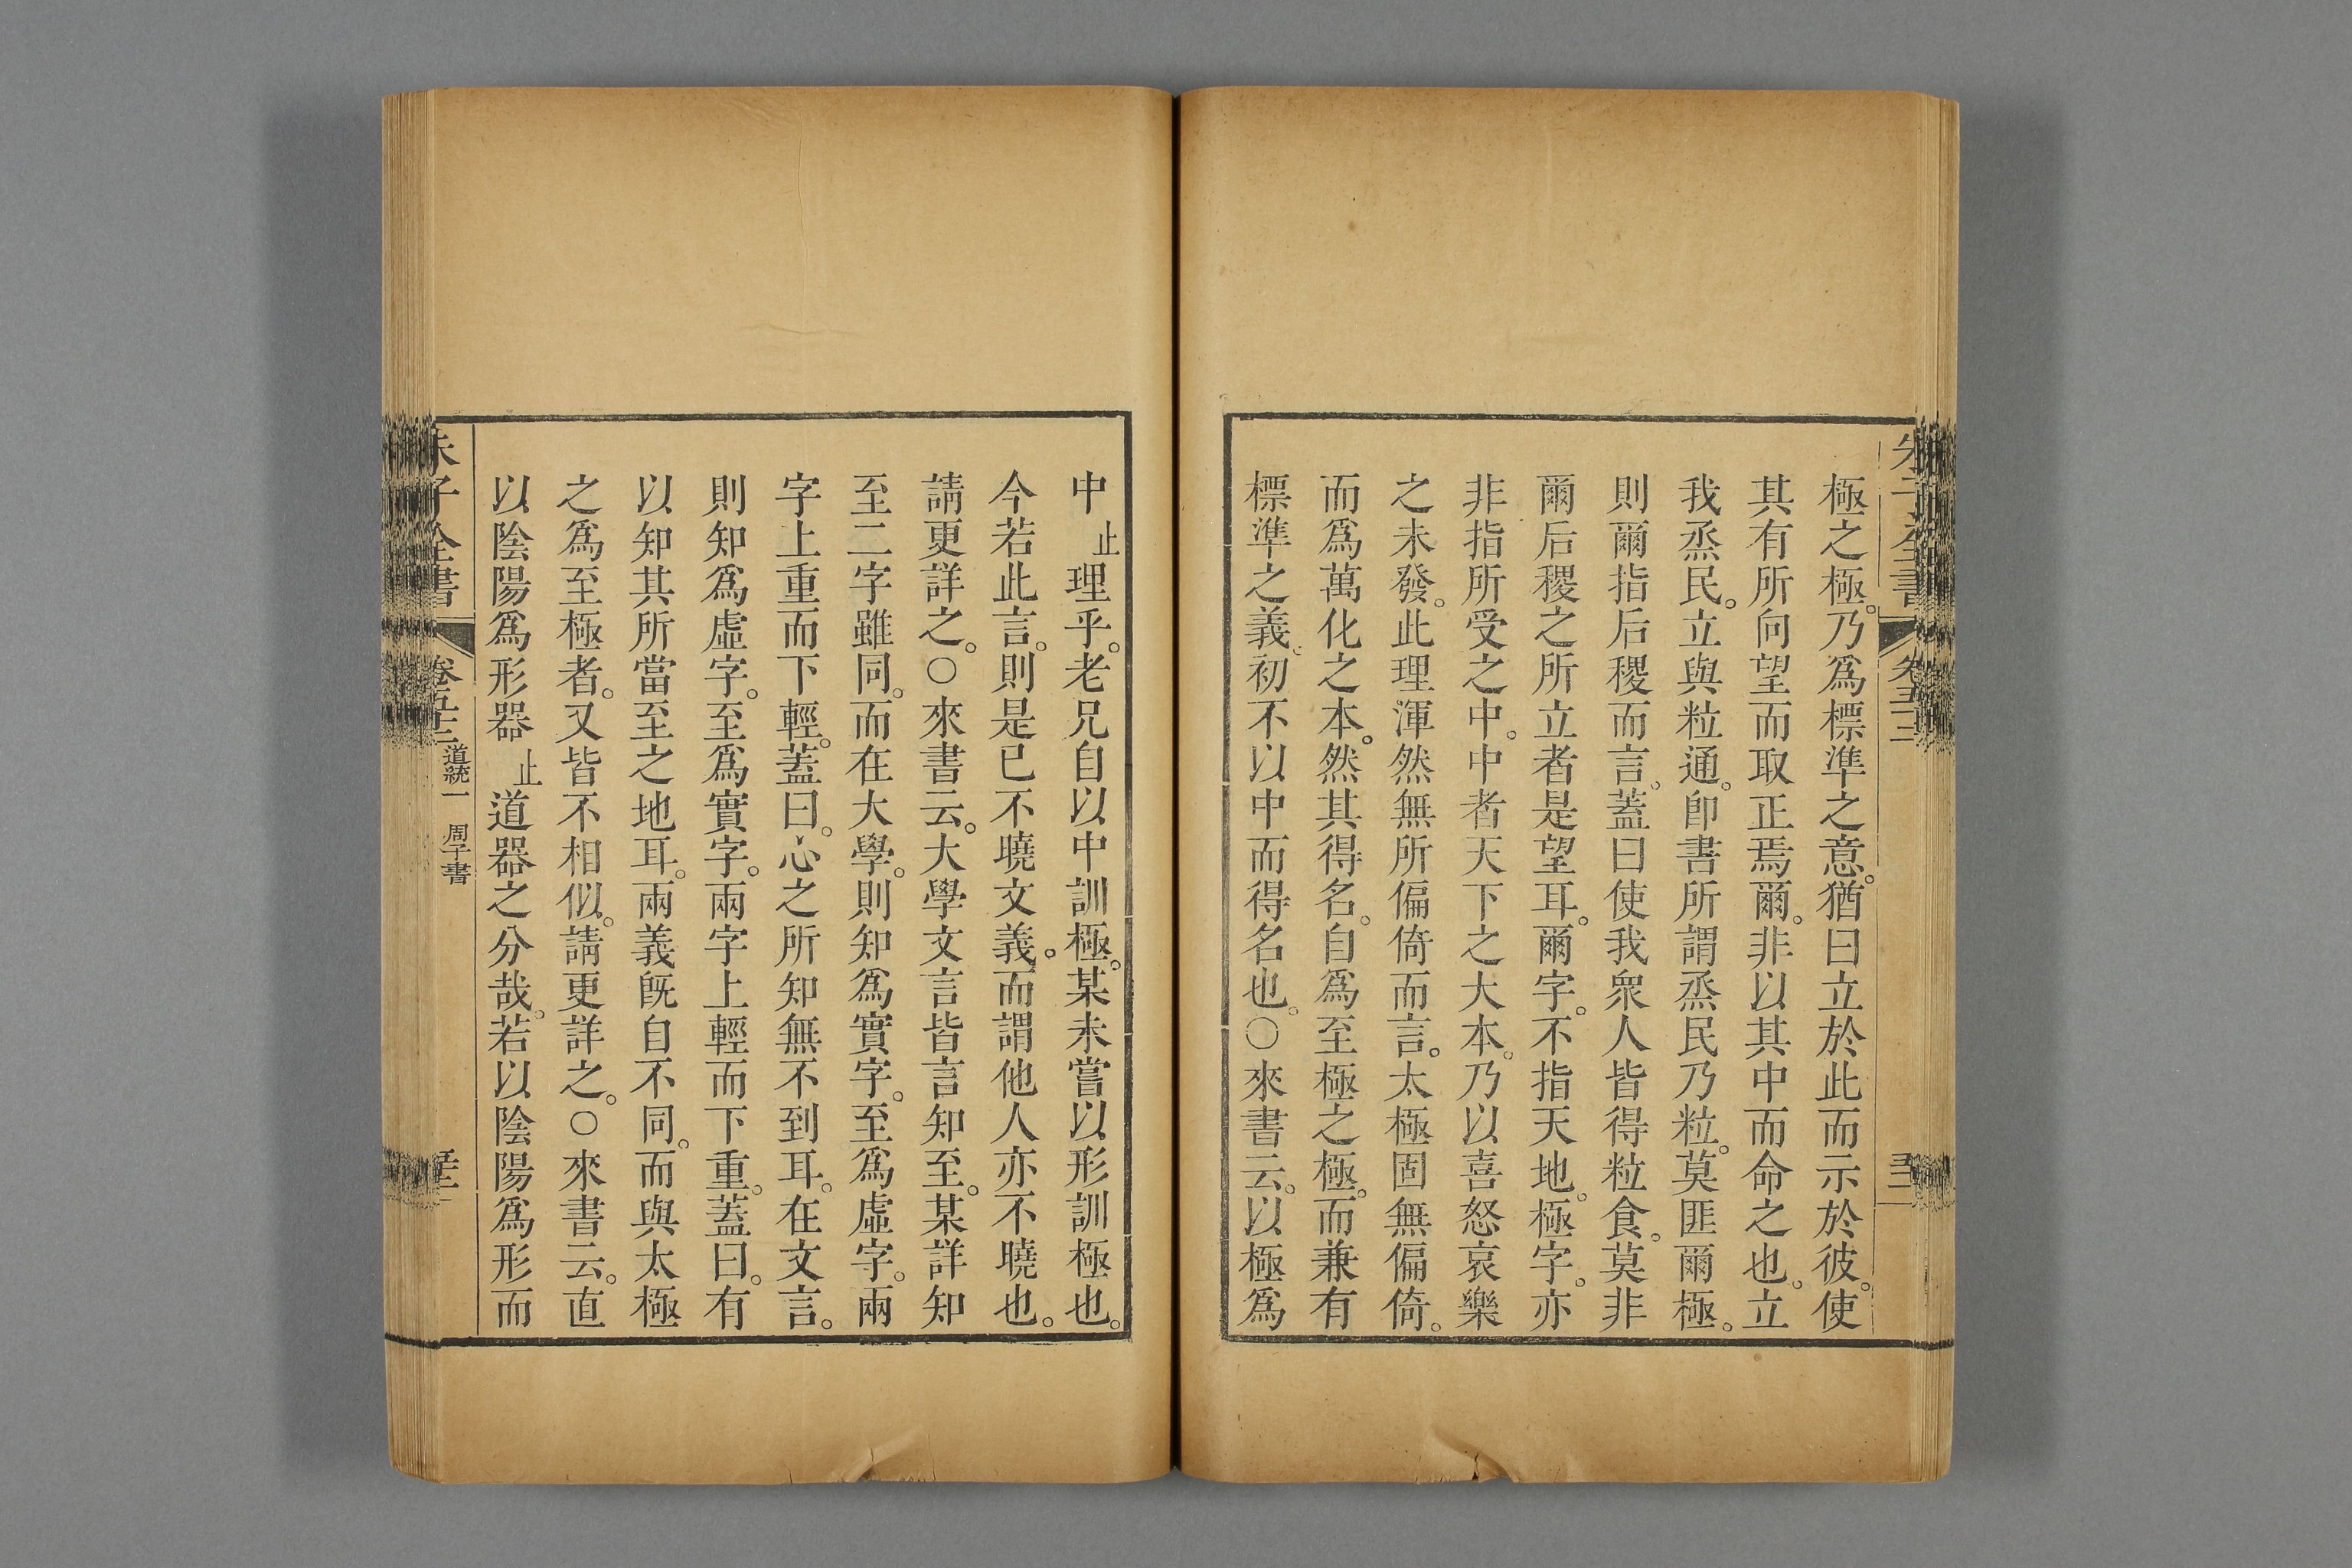 朱子全書 卷五十三
極之極。乃爲標準之意。猶曰立於此而示於彼。使
其有所向望而取正焉爾。非以其中而命之也。立
我烝民。立與粒通。卽書所謂烝民乃粒。莫匪爾極。
則爾指后稷而言。蓋曰使我衆人皆得粒食。莫非
爾后稷之所立者是望耳。爾字。不指天地。極字。亦
非指所受之中。中者天下之大本。乃以喜怒哀樂
之未發。此理渾然無所偏倚而言。太極固無偏倚。
而爲萬化之本。然其得名。自爲至極之極。而兼有
標準之義。初不以中而得名也。○來書云。以極爲
中止理乎。老兄自以中訓極。某未嘗以形訓極也。
今若此言。則是已不曉文義。而謂他人亦不曉也。
請更詳之。○來書云。大學文言皆言知至。某詳知
至二字雖同。而在大學。則知爲實字。至爲虛字。兩
字上重而下輕。蓋曰。心之所知無不到耳。在文言。
則知爲虛字。至爲實字。兩字上輕而下重。蓋曰。有
以知其所當至之地耳。兩義旣自不同。而與太極
之爲至極者。又皆不相似。請更詳之。○來書云。直
以陰陽爲形器止道器之分哉。若以陰陽爲形而
朱子全書 卷五十三 道統一 周子書